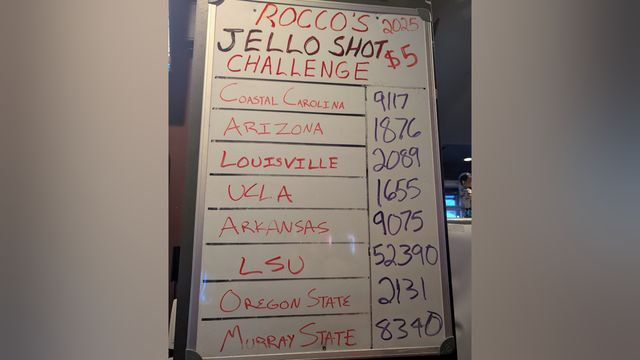 ROCCO'S 2025
JELLO SHOT $5
CHALLENGE
COASTAL CAROLINA 9117
ARIZONA 1876
LOUISVILLE 2089
UCLA 1655
ARKANSAS 9075
LSU 52390
OREGON STATE 2131
MURRAY STATE 8340